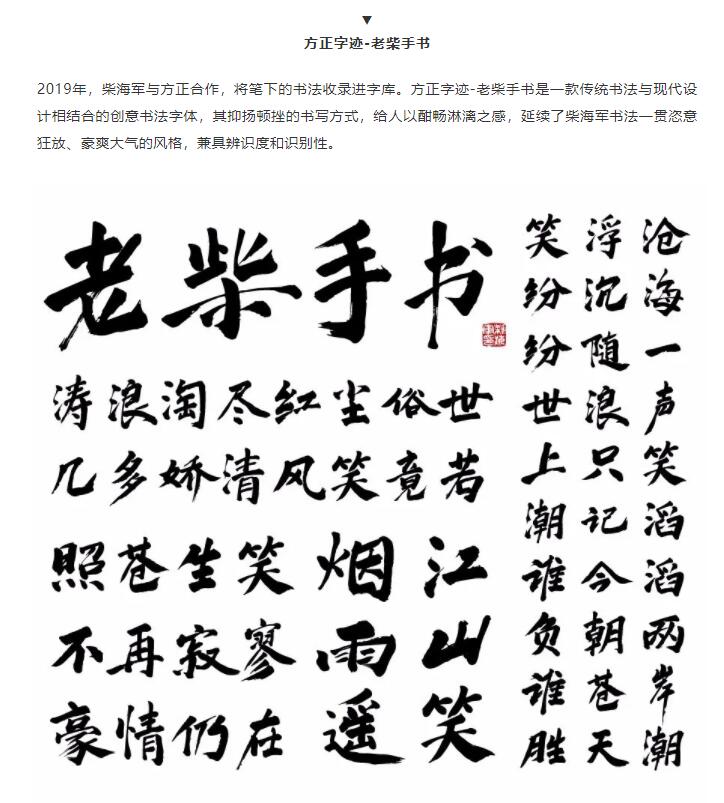 方正字迹-老柴手书
2019年，柴海军与方正合作，将笔下的书法收录进字库。方正字迹-老柴手书是一款传统书法与现代设
计相结合的创意书法字体，其抑扬顿挫的书写方式，给人以酣畅淋漓之感，延续了柴海军书法一贯恣意
狂放、豪爽大气的风格，兼具辨识度和识别性。
老柴手书
沧海一声笑滔滔两岸潮
浮沉随浪只记今朝苍天
笑纷纷世上潮谁负谁胜
涛浪淘尽红尘俗世
几多娇清风笑竟若
照苍生笑
不再寂寥
豪情仍在
江山笑
烟雨遥